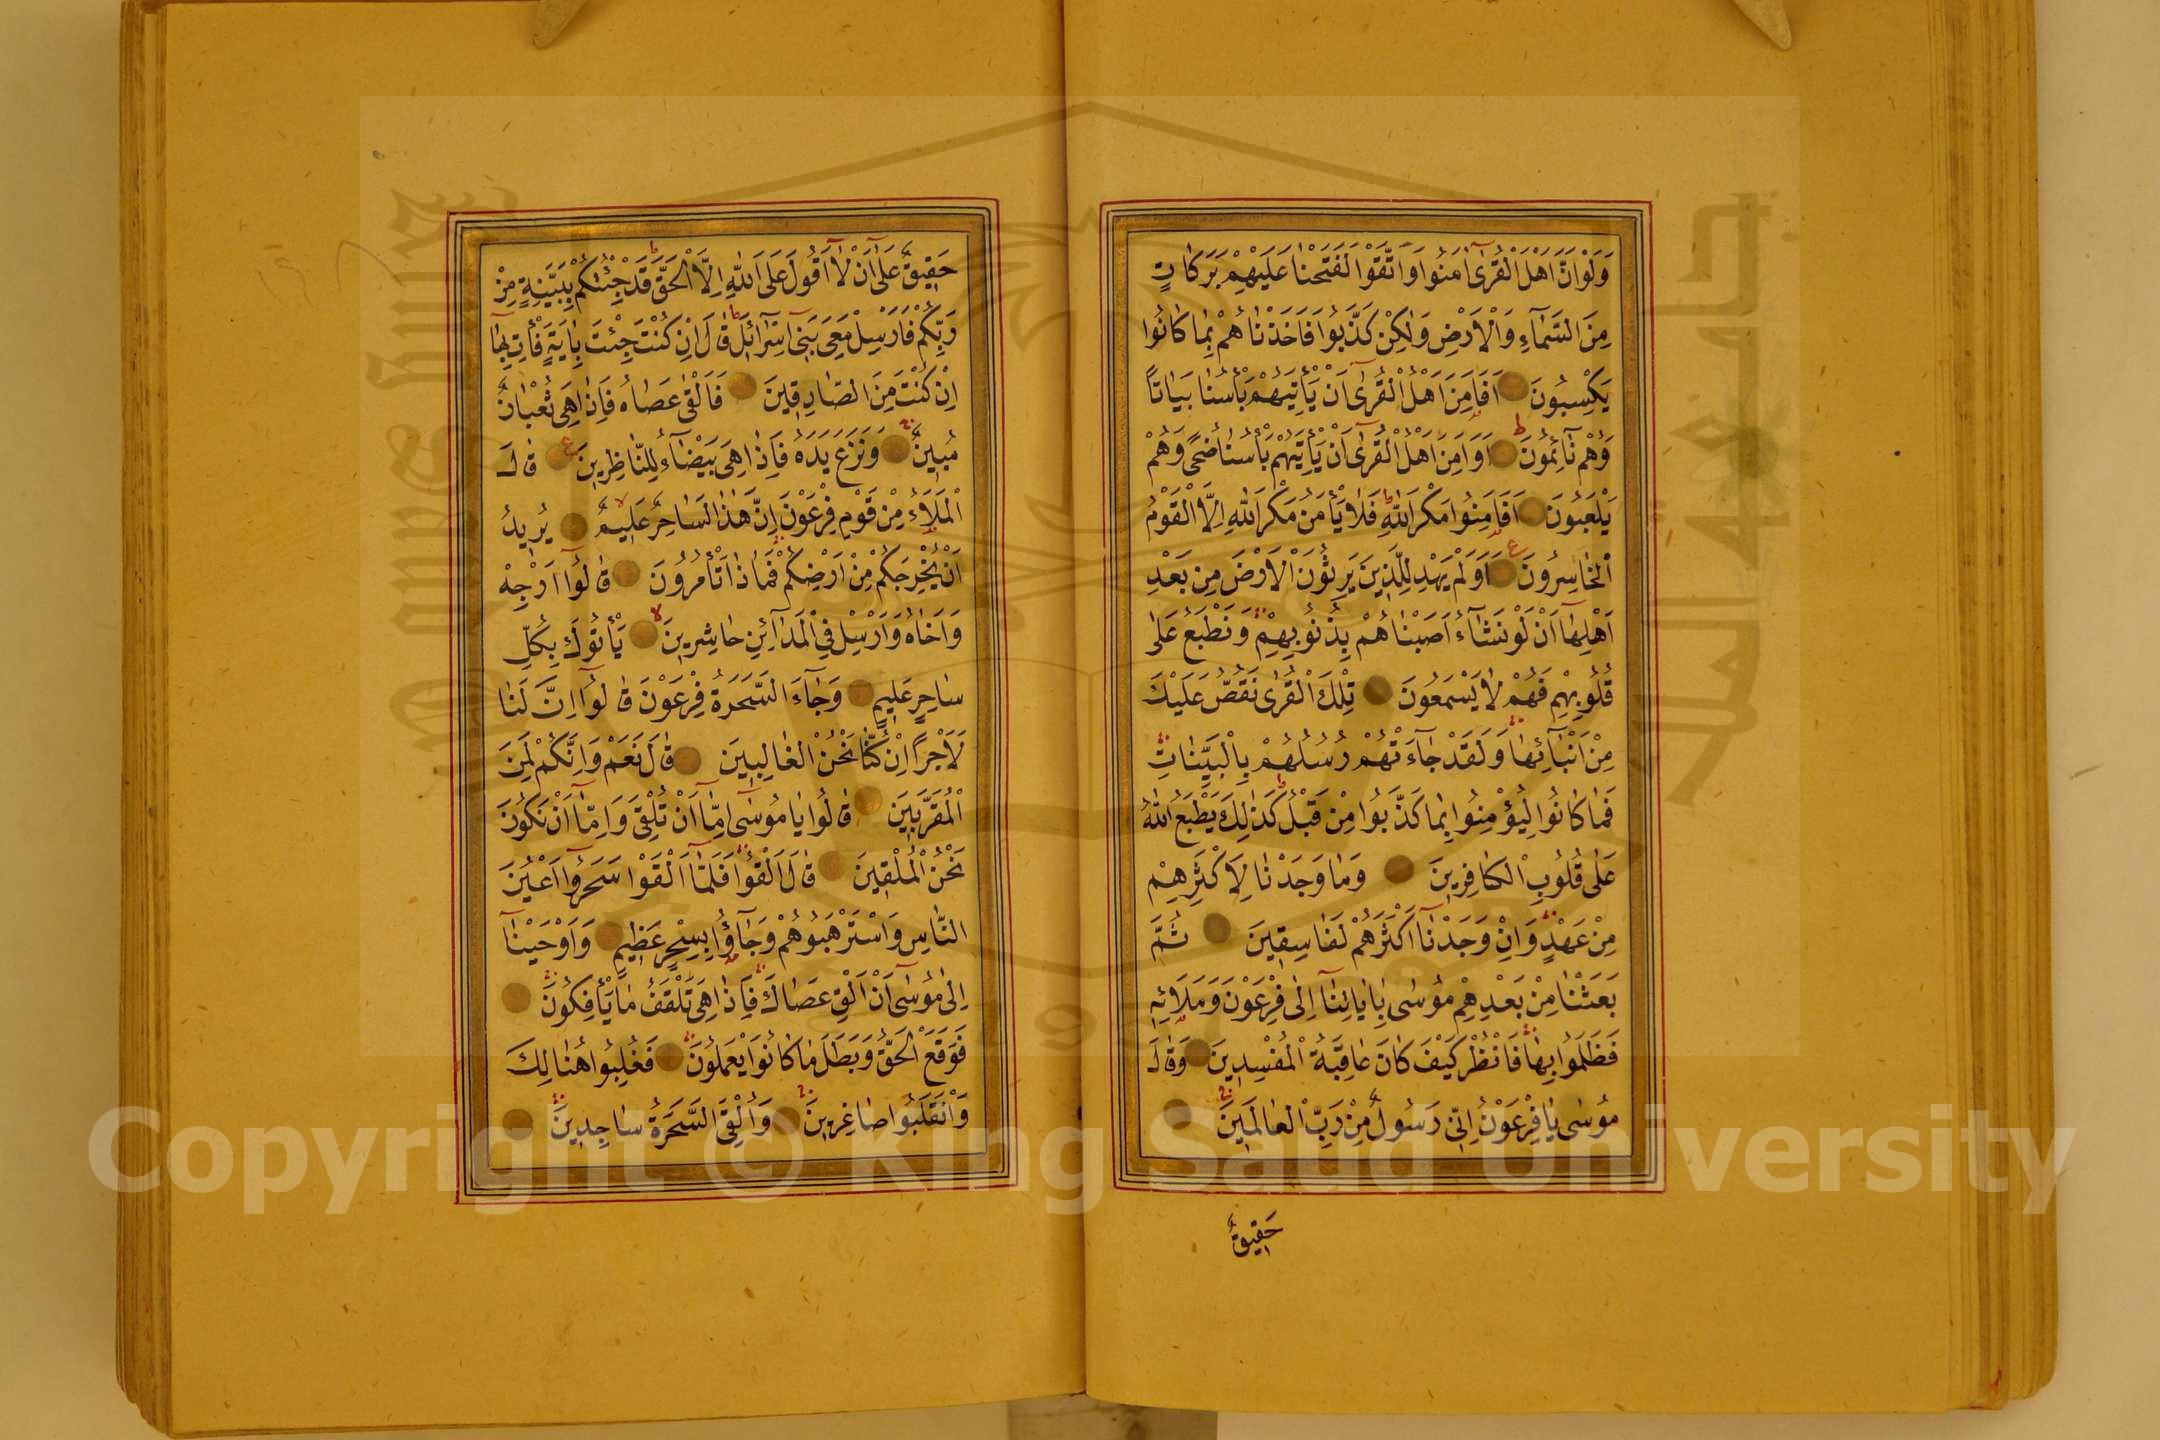 وَلَوْ اَنَّ اَهْلَ الْقُرٰٓى اٰمَنُوا وَاتَّقَوْا لَفَتَحْنَا عَلَيْهِمْ بَرَكَاتٍ
مِنَ السَّمَآءِ وَالْاَرْضِ وَلٰكِنْ كَذَّبُوا فَاَخَذْنَاهُمْ بِمَا كَانُوا
يَكْسِبُونَ اَفَاَمِنَ اَهْلُ الْقُرٰٓى اَنْ يَأْتِيَهُمْ بَأْسُنَا بَيَاتًا
وَهُمْ نَآئِمُونَ اَوَاَمِنَ اَهْلُ الْقُرٰٓى اَنْ يَأْتِيَهُمْ بَأْسُنَا ضُحًى وَهُمْ
يَلْعَبُونَ اَفَاَمِنُوا مَكْرَ اللّٰهِ فَلَا يَأْمَنُ مَكْرَ اللّٰهِ اِلَّا الْقَوْمُ
الْخَاسِرُونَ اَوَلَمْ يَهْدِ لِلَّذِينَ يَرِثُونَ الْاَرْضَ مِنْ بَعْدِ
اَهْلِهَآ اَنْ لَوْ نَشَآءُ اَصَبْنَاهُمْ بِذُنُوبِهِمْ وَنَطْبَعُ عَلٰى
قُلُوبِهِمْ فَهُمْ لَا يَسْمَعُونَ تِلْكَ الْقُرٰى نَقُصُّ عَلَيْكَ
مِنْ اَنْبَآئِهَا وَلَقَدْ جَآءَتْهُمْ رُسُلُهُمْ بِالْبَيِّنَاتِ
فَمَا كَانُوا لِيُؤْمِنُوا بِمَا كَذَّبُوا مِنْ قَبْلُ كَذٰلِكَ يَطْبَعُ اللّٰهُ
عَلٰى قُلُوبِ الْكَافِرِينَ وَمَا وَجَدْنَا لِاَكْثَرِهِمْ
مِنْ عَهْدٍ وَاِنْ وَجَدْنَآ اَكْثَرَهُمْ لَفَاسِقِينَ ثُمَّ
بَعَثْنَا مِنْ بَعْدِهِمْ مُوسٰى بِاٰيَاتِنَآ اِلٰى فِرْعَوْنَ وَمَلَائِهِ
فَظَلَمُوا بِهَا فَانْظُرْ كَيْفَ كَانَ عَاقِبَةُ الْمُفْسِدِينَ وَقَالَ
مُوسٰى يَا فِرْعَوْنُ اِنِّى رَسُولٌ مِنْ رَبِّ الْعَالَمِينَ
حَقِيقٌ
حَقِيقٌ عَلٰٓى اَنْ لَآ اَقُولَ عَلَى اللّٰهِ اِلَّا الْحَقَّ قَدْ جِئْتُكُمْ بِبَيِّنَةٍ مِنْ
رَبِّكُمْ فَاَرْسِلْ مَعِىَ بَنِىٓ اِسْرَآئِلَ قَالَ اِنْ كُنْتَ جِئْتَ بِاٰيَةٍ فَأْتِ بِهَآ
اِنْ كُنْتَ مِنَ الصَّادِقِينَ فَاَلْقٰى عَصَاهُ فَاِذَا هِىَ ثُعْبَانٌ
مُبِينٌ وَنَزَعَ يَدَهُ فَاِذَا هِىَ بَيْضَآءُ لِلنَّاظِرِينَ قَالَ
الْمَلَاُ مِنْ قَوْمِ فِرْعَوْنَ اِنَّ هٰذَا لَسَاحِرٌ عَلِيمٌ يُرِيدُ
اَنْ يُخْرِجَكُمْ مِنْ اَرْضِكُمْ فَمَاذَا تَأْمُرُونَ قَالُوٓا اَرْجِهْ
وَاَخَاهُ وَاَرْسِلْ فِى الْمَدَآئِنِ حَاشِرِينَ يَأْتُوكَ بِكُلِّ
سَاحِرٍ عَلِيمٍ وَجَآءَ السَّحَرَةُ فِرْعَوْنَ قَالُوٓا اِنَّ لَنَا
لَاَجْرًا اِنْ كُنَّا نَحْنُ الْغَالِبِينَ قَالَ نَعَمْ وَاِنَّكُمْ لَمِنَ
الْمُقَرَّبِينَ قَالُوا يَا مُوسٰٓى اِمَّآ اَنْ تُلْقِىَ وَاِمَّآ اَنْ نَكُونَ
نَحْنُ الْمُلْقِينَ قَالَ اَلْقُوا فَلَمَّآ اَلْقَوْا سَحَرُوٓا اَعْيُنَ
النَّاسِ وَاسْتَرْهَبُوهُمْ وَجَآؤُا بِسِحْرٍ عَظِيمٍ وَاَوْحَيْنَآ
اِلٰى مُوسٰٓى اَنْ اَلْقِ عَصَاكَ فَاِذَا هِىَ تَلْقَفُ مَا يَأْفِكُونَ
فَوَقَعَ الْحَقُّ وَبَطَلَ مَا كَانُوا يَعْمَلُونَ فَغُلِبُوا هُنَالِكَ
وَانْقَلَبُوا صَاغِرِينَ وَاُلْقِىَ السَّحَرَةُ سَاجِدِينَ
Copyright © King Saud University